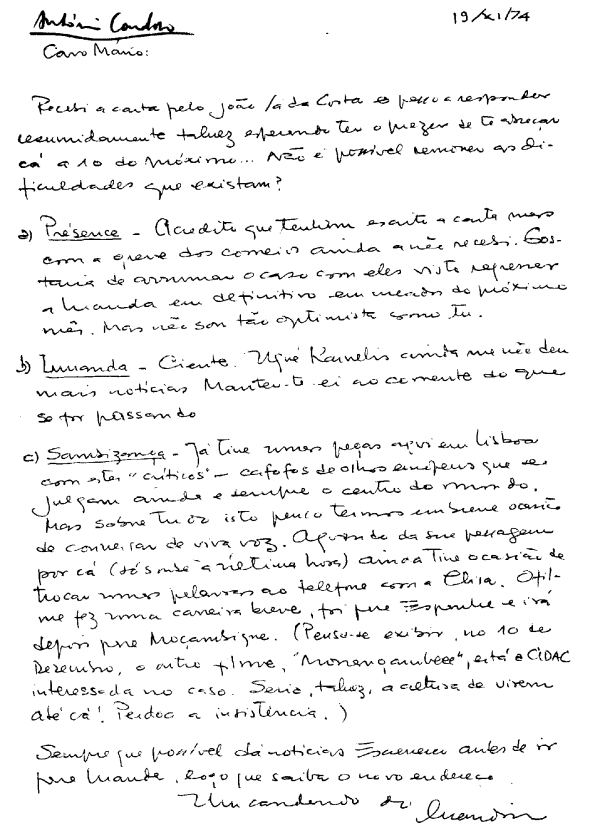 António Cardoso
19/XI/74
Caro Mário:
Recebi a carta pelo João Sá da Costa e passo a responder
resumidamente talvez esperando ter o prazer de te abraçar
cá a 10 do próximo... Não é possível remover as di-
ficuldades que existam?
a) Présence - Acredito que tenham escrito a carta mas
com a greve dos correios ainda a não recebi. Gos-
taria de arrumar o caso com eles visto regressar
a Luanda em definitivo em meados do próximo
mês. Mas não sou tão optimista como tu.
b) Luuanda - Ciente. Ugné Karvelis ainda me não deu
mais notícias. Manter-te-ei ao corrente do que
se for passando
c) Sambizanga - Já tive umas pegas aqui em Lisboa
com estes "críticos" - cafofos de olhos europeus que se
julgam ainda e sempre o centro do mundo.
Mas sobre tudo isto penso termos em breve ocasião
de conversar de viva voz. Aquando da sua passagem
por cá (só soube à última hora) ainda tive ocasião de
trocar umas palavras ao telefone com a Elisa. O fil-
me fez uma carreira breve, foi para Espanha e irá
depois para Moçambique. (Pensa-se exibir, no 10 de
Dezembro, o outro filme, "Monangambeee", está a CIDAC
interessada no caso. Seria, talvez, a altura de virem
até cá! Perdoa a insistência.)
Sempre que possível dá notícias. Escreverei antes de ir
para Luanda, logo que saiba o novo endereço
Um candando do Luandino